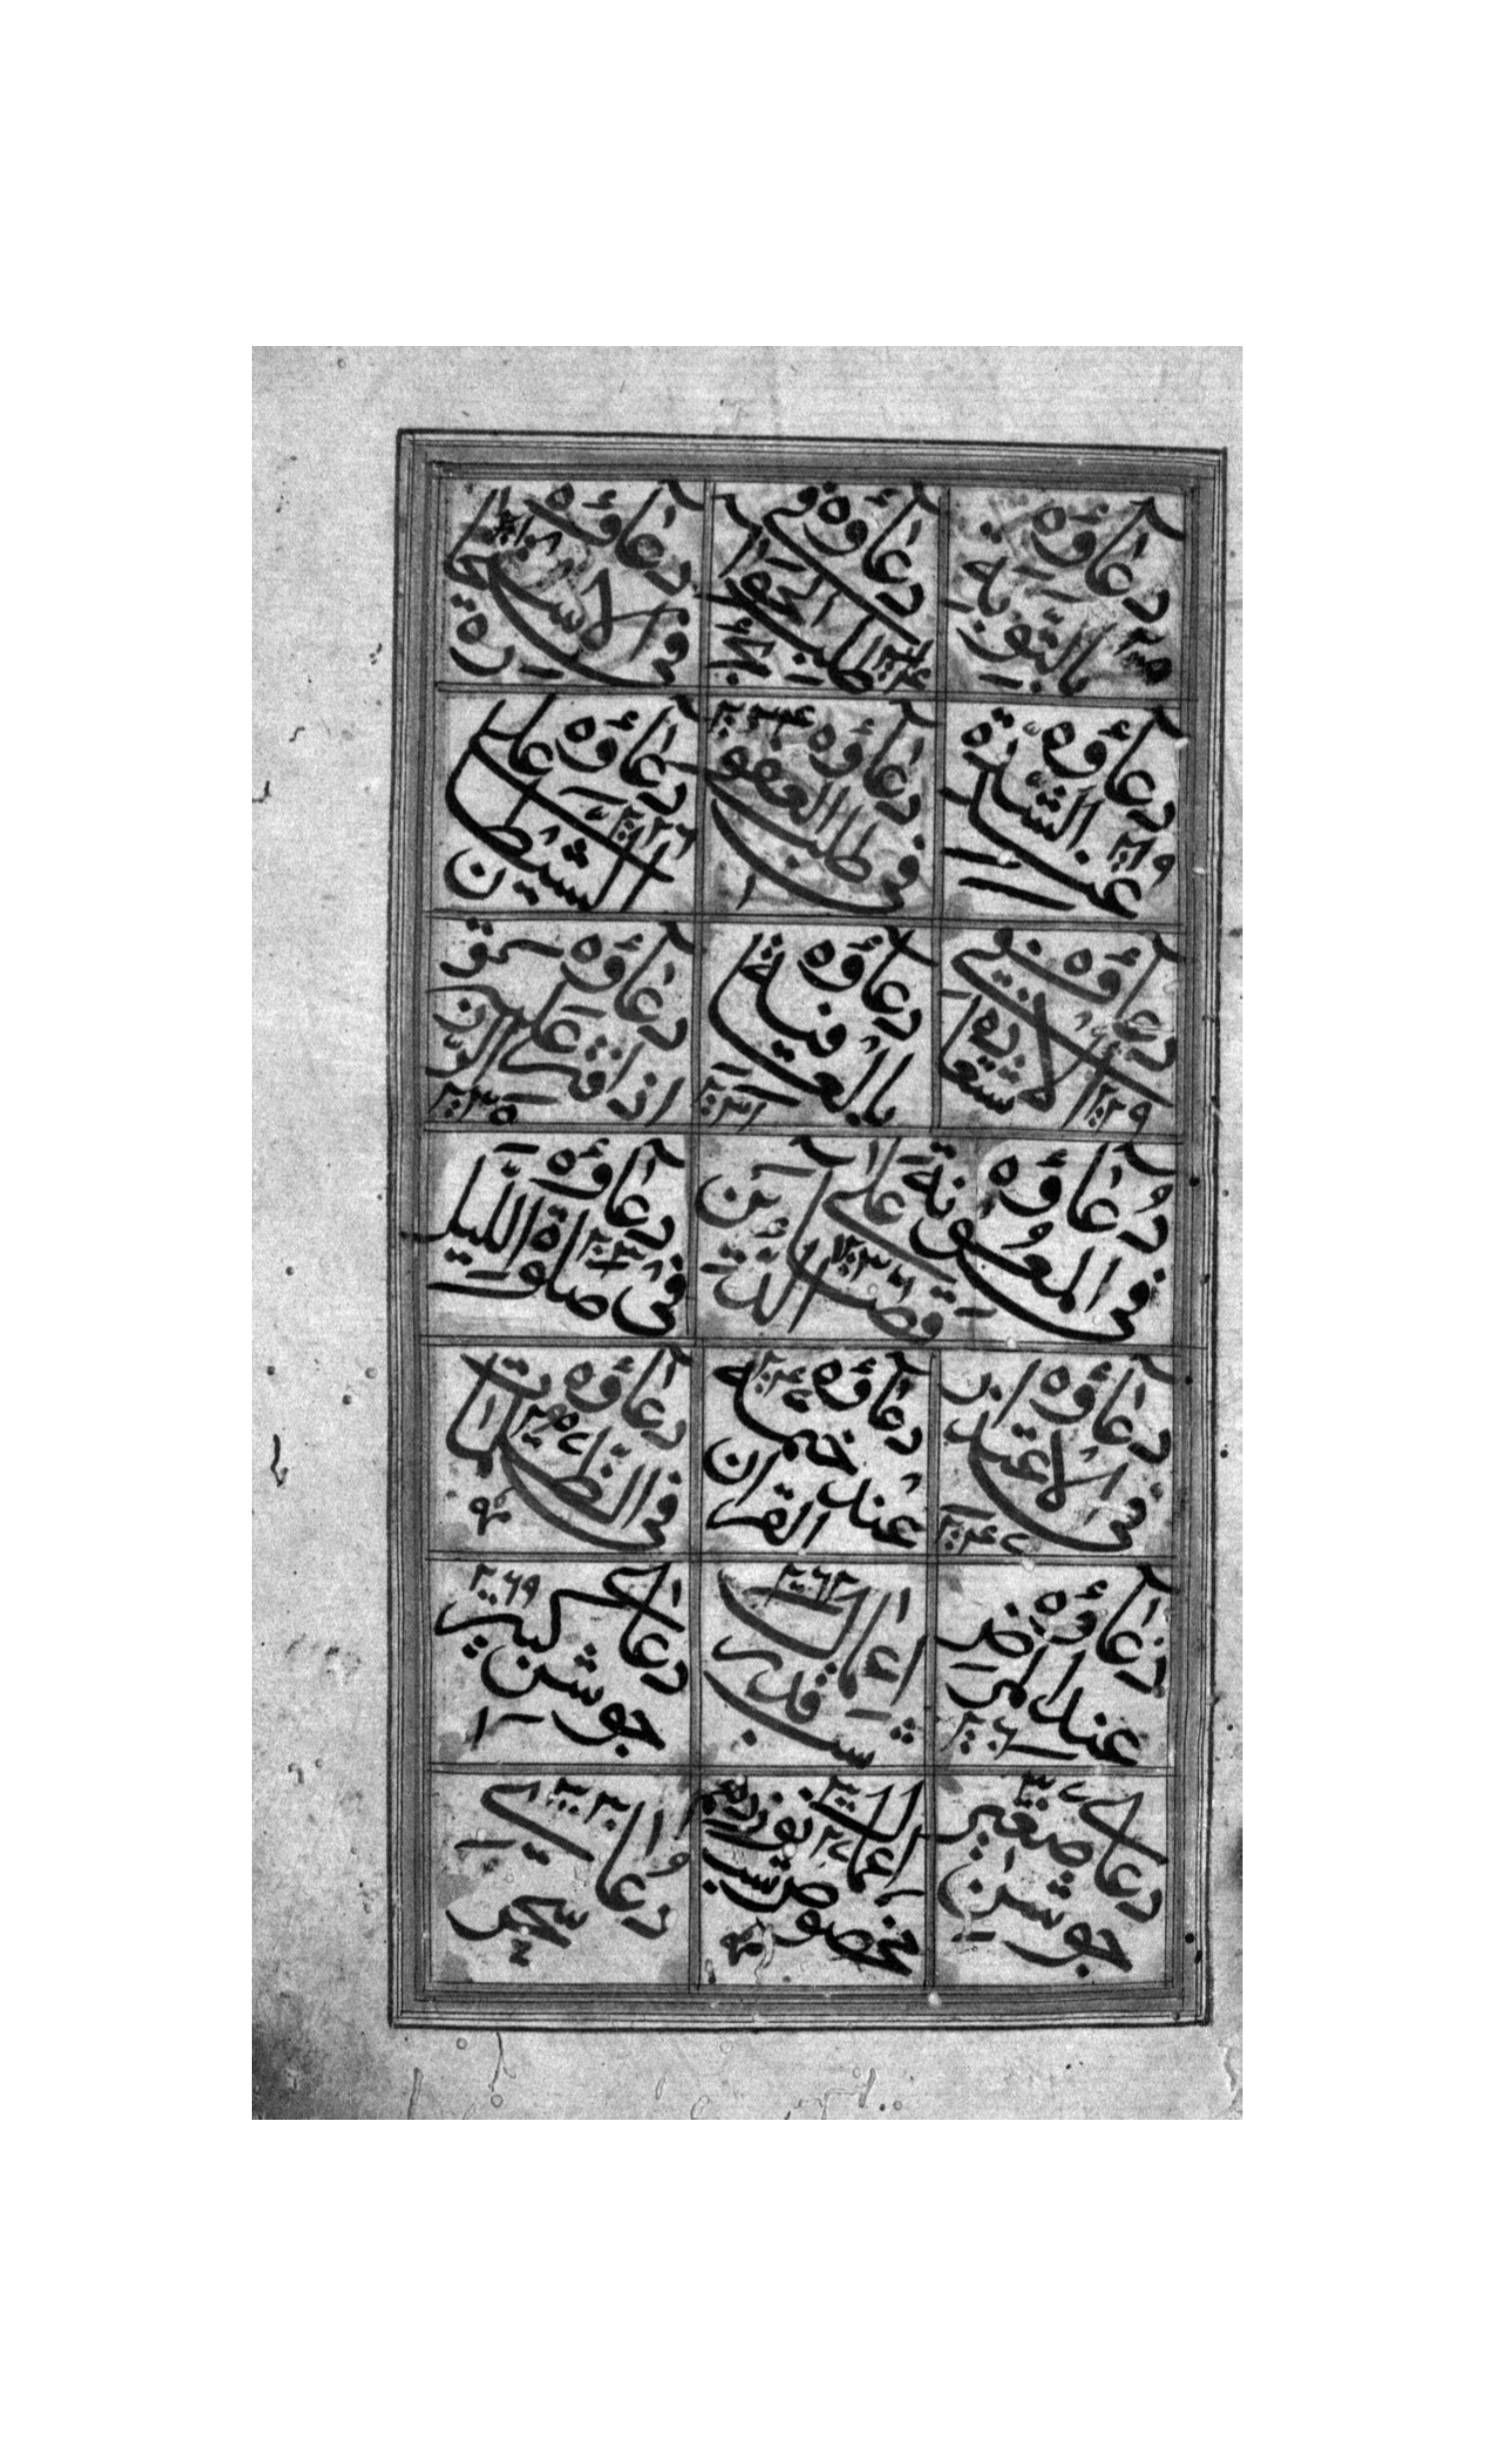 دعاؤه بالتوبة
دعاؤه في طلب الحوائج
دعاؤه في الاستخارة
دعاؤه عند الشدة
دعاؤه في طلب العفو
دعاؤه على الشيطين
دعاؤه في الاستعاذه
دعاؤه بالعافية
دعاؤه اذا قتر عليه الرزق
دعاؤه في المعونة على قضاء الدين
دعاؤه في صلوة الليل
دعاؤه في الاعتذار
دعاؤه عند ختمه القران
دعاؤه في الظلامات
دعاؤه عند المرض
اعمال شب قدر ٢٠٦٢
دعاى جوشن كبير ٢٠٦٩
دعاى جوشن صغير
اعمال بخصوص شب
دعاى سحر